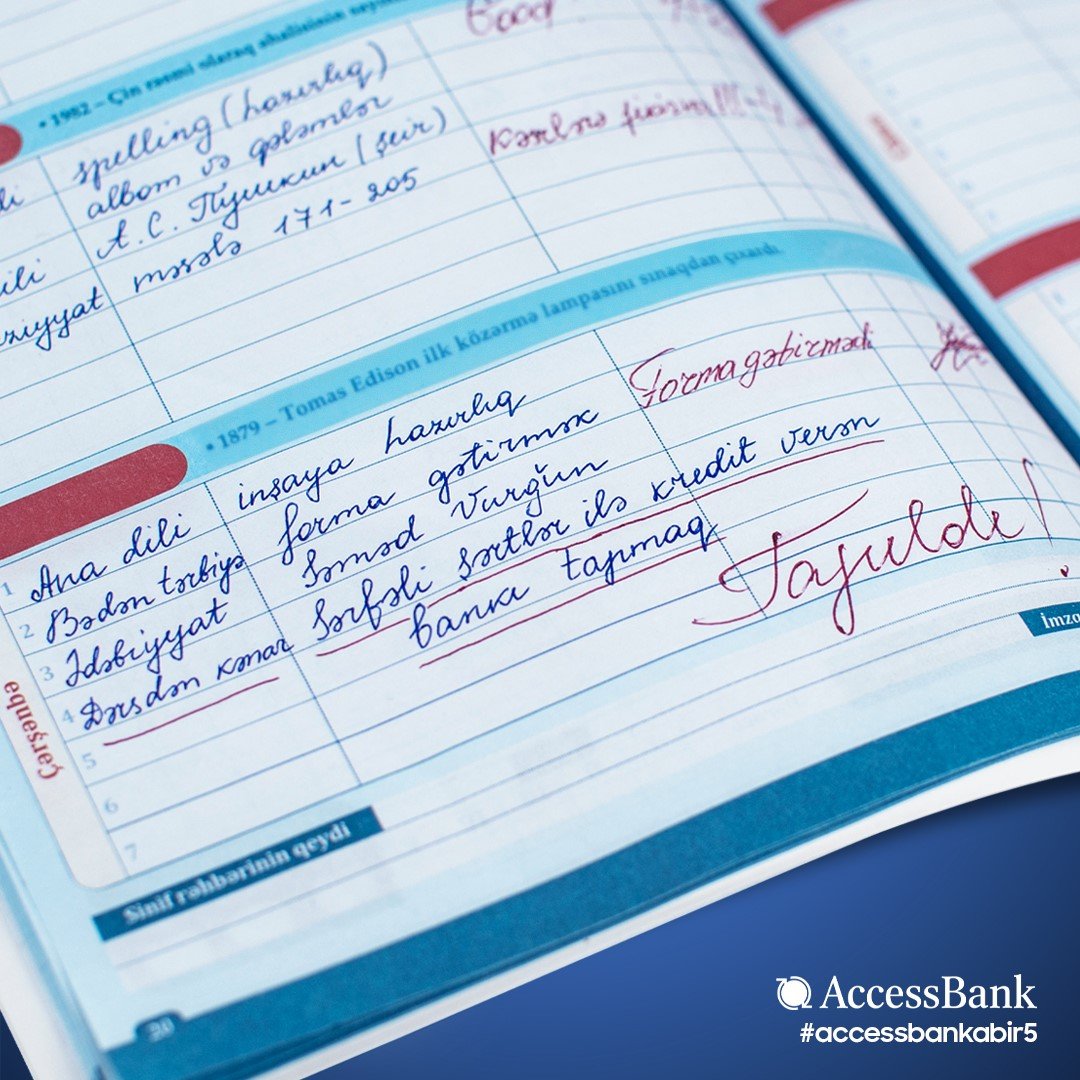 • 1982 – Çin rəsmi olaraq əhalisinin
Good
spelling (hazırlıq)
albom və qələmlər
А. С. Пушкин (şeir)
məsələ 171-205
Kəsrlərə fikir ver!!!
• 1879 – Tomas Edison ilk közərmə lampasını sınaqdan çıxardı.
1 Ana dili inşaya hazırlıq
2 Bədən tərbiyə forma gətirmək Forma gətirmədi
3 Ədəbiyyat Səməd Vurğun
4 Dərsdən kənar Sərfəli şərtlər ilə kredit verən
bankı tapmaq Tapıldı!
5
6
7
Çərşənbə
Sinif rəhbərinin qeydi
İmza
20
AccessBank
#accessbankabir5